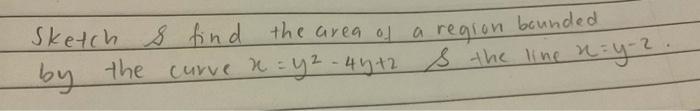 Sketch & find the area of a region bounded
by the curve x = y² - 4y + 2 & the line x = y - 2.